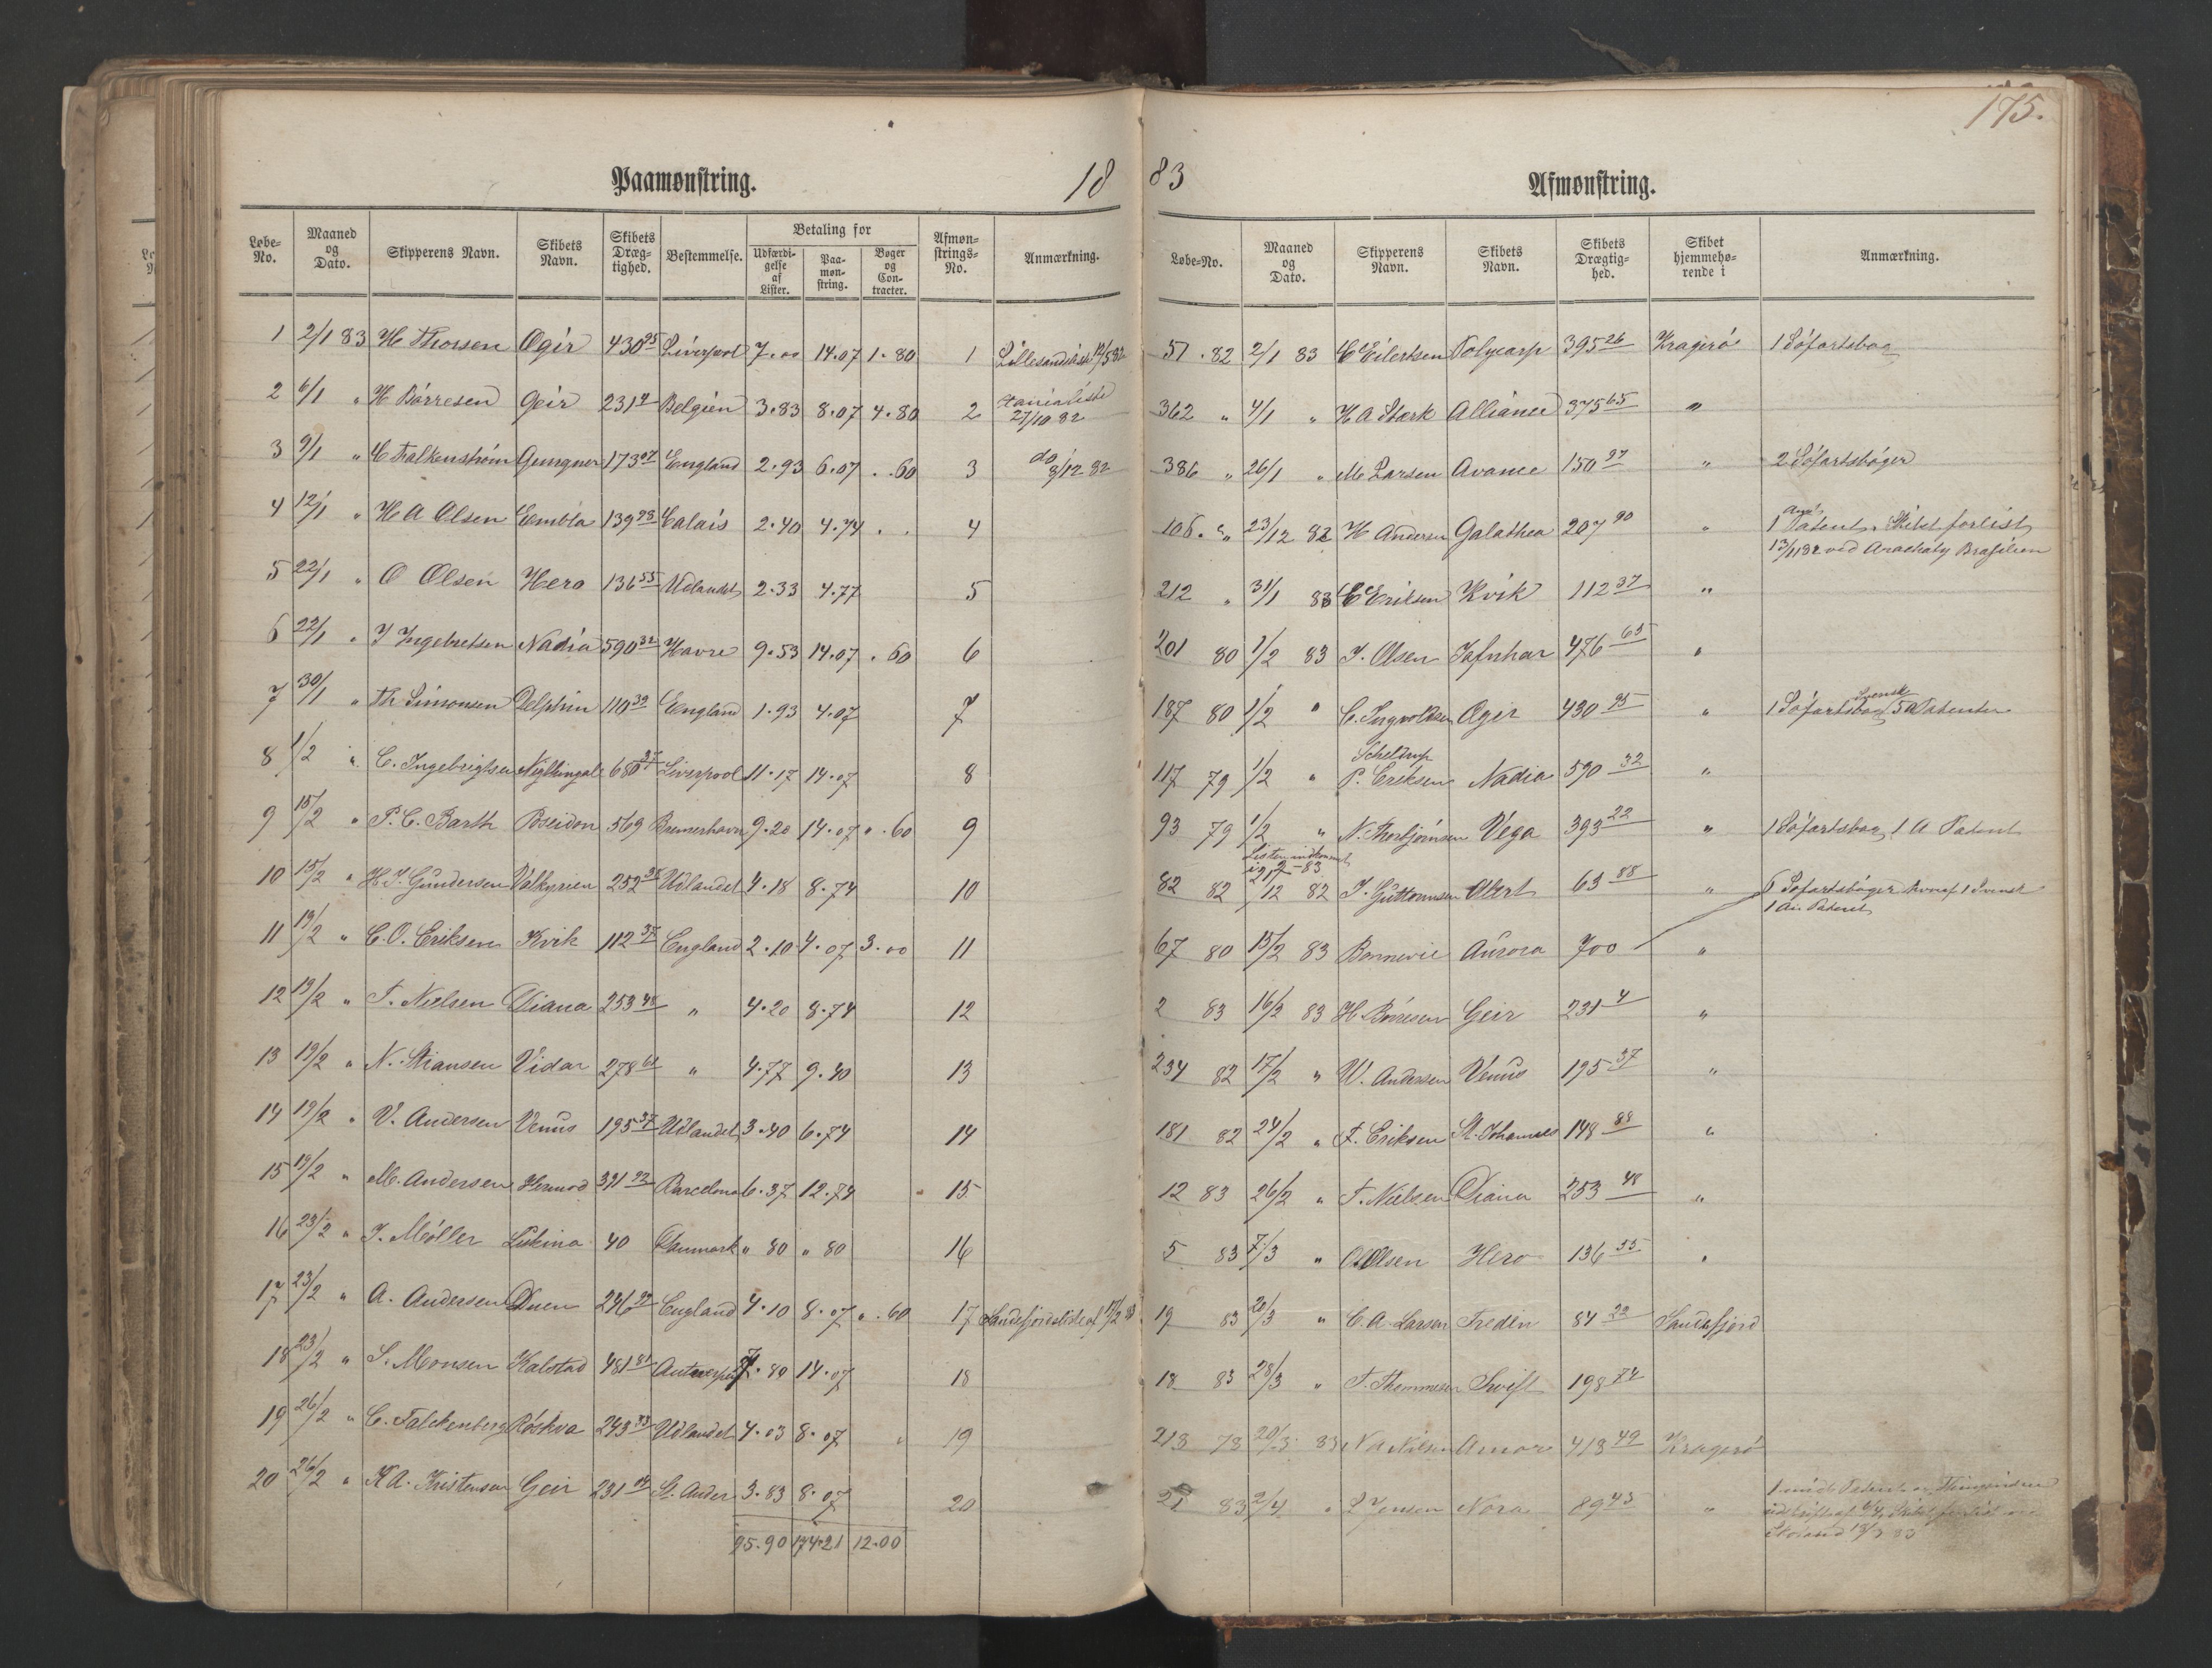 175.
Paamønstring. 18
83 Afmønstring.
Løbe-No. Maaned og Dato. Skipperens Navn. Skibets Navn. Skibets Drægtighed. Bestemmelse. Betaling for Udfærdigelse af Lister. Paamønstring. Bøger og Contracter. Afmønstrings-No. Anmærkning.
1 2/1 83 H Thorsen Ægir 430 95 Liverpool 7.00 14.07 1.80 1 Lillesandsliste 12/5 82
2 6/1 " H Børresen Geir 231 4 Belgien 3.83 8.07 4.80 2 27/10 82
3 9/1 " C Falkenstrøm Gungner 173 07 England 2.93 6.07 . .60 3 do 8/12 82
4 12/1 " H A Olsen Embla 139 98 Calais 2.40 4.74 . . 4
5 22/1 " O Olsen Hero 136 55 Udlandet 2.33 4.77 5
6 22/1 " J Ingebretsen Nadia 590 32 Havre 9.53 14.07 . 60 6
7 30/1 " Th Simonsen Delphin 110 39 England 1.93 4.07 7
8 1/2 " C. Ingebrigtsen Nightingale 680 37 Liverpool 11.17 14.07 8
9 15/2 " P. C. Barth Poseidon 569 Bremerhavn 9.20 14.07 " .60 9
10 15/2 " H. J. Gundersen Valkyrien 252 38 Udlandet 4.18 8.74 10
11 19/2 " C. O. Eriksen Kvik 112 37 England 2.10 4.07 3.00 11
12 19/2 " T. Nielsen Diana 253 48 " 4.20 8.74 12
13 19/2 " N. Stiansen Vidar 278 61 " 4.77 9.40 13
14 19/2 " V. Andersen Venus 195 37 Udlandet 3.40 6.74 14
15 19/2 " M. Andersen Hermod 391 92 Barcelona 6.37 12.74 15
16 23/2 " J. Møller Lukina 40 Danmark " 80 " 80 16
17 23/2 " A. Andersen Duen 246 99 England 4.10 8.07 " .60 17 Sandefjordsliste af 17/2 83
18 23/2 " S. Monsen Kalstad 481 81 Antwerpen 7.80 14.07 18
19 26/2 " C. Falckenberg Røskva 243 33 Udlandet 4.03 8.07 " 19
20 26/2 " K A. Kristensen Geir 231 04 St. Ander 3.83 8.07 20
95.90 174.21 12.00
Løbe-No. Maaned og Dato. Skipperens Navn. Skibets Navn. Skibets Drægtighed. Skibet hjemmehørende i Anmærkning.
51 . 82 2/1 83 C Eilertsen Polycarp 395 26 Kragerø 1 Søfartsbog
362 " 4/1 " H A Stærk Alliance 375 65 "
386 " 26/1 " M Larsen Avance 150 97 " 2 Søfartsbøger
106. " 23/12 82 H Andersen Galathea 207 90 " 1 Patent. Skibet forlist
13/11 82 ved Brasilien
212 " 31/1 83 C Eriksen Kvik 112 37 "
201 80 1/2 83 J. Olsen Jafnhar 476 65 "
187 80 1/2 " C. Ingvoldsen Ægir 430 95 " 1 Søfartsbog svensk 5 A Patenter
117 79 1/2 " Scheldrup
P. Eriksen Nadia 590 32 "
93 79 1/2 " N. Thorbjørnsen Vega 393 22 " 1 Søfartsbog, 1 A Patent
Listen indkommet
i 21/2-83
82 82 /12 82 J. Guttormsen Albert 63 88 " 6 Søfartsbøger hvoraf 1 Svensk
1 An. Patent
67 80 15/2 83 Bonnevie Aurora 700 "
2 83 16/2 83 H. Børresen Geir 231 4 "
234 82 17/2 " W. Andersen Venus 195 37 "
181 82 24/2 " F. Eriksen St. Johannes 148 88 "
12 83 26/2 " T. Nielsen Diana 253 48 "
5 83 7/3 " O. Olsen Hero 136 55 "
19 83 20/3 " C. A. Larsen Fredin 84 22 Sandefjord
18 83 28/3 " T. Thommesen Swift 198 74
213 78 20/3 83 N A Nilsen Amor 413 49 Kragerø
21 83 2/4 " L Jensen Nora 89 43 " 1